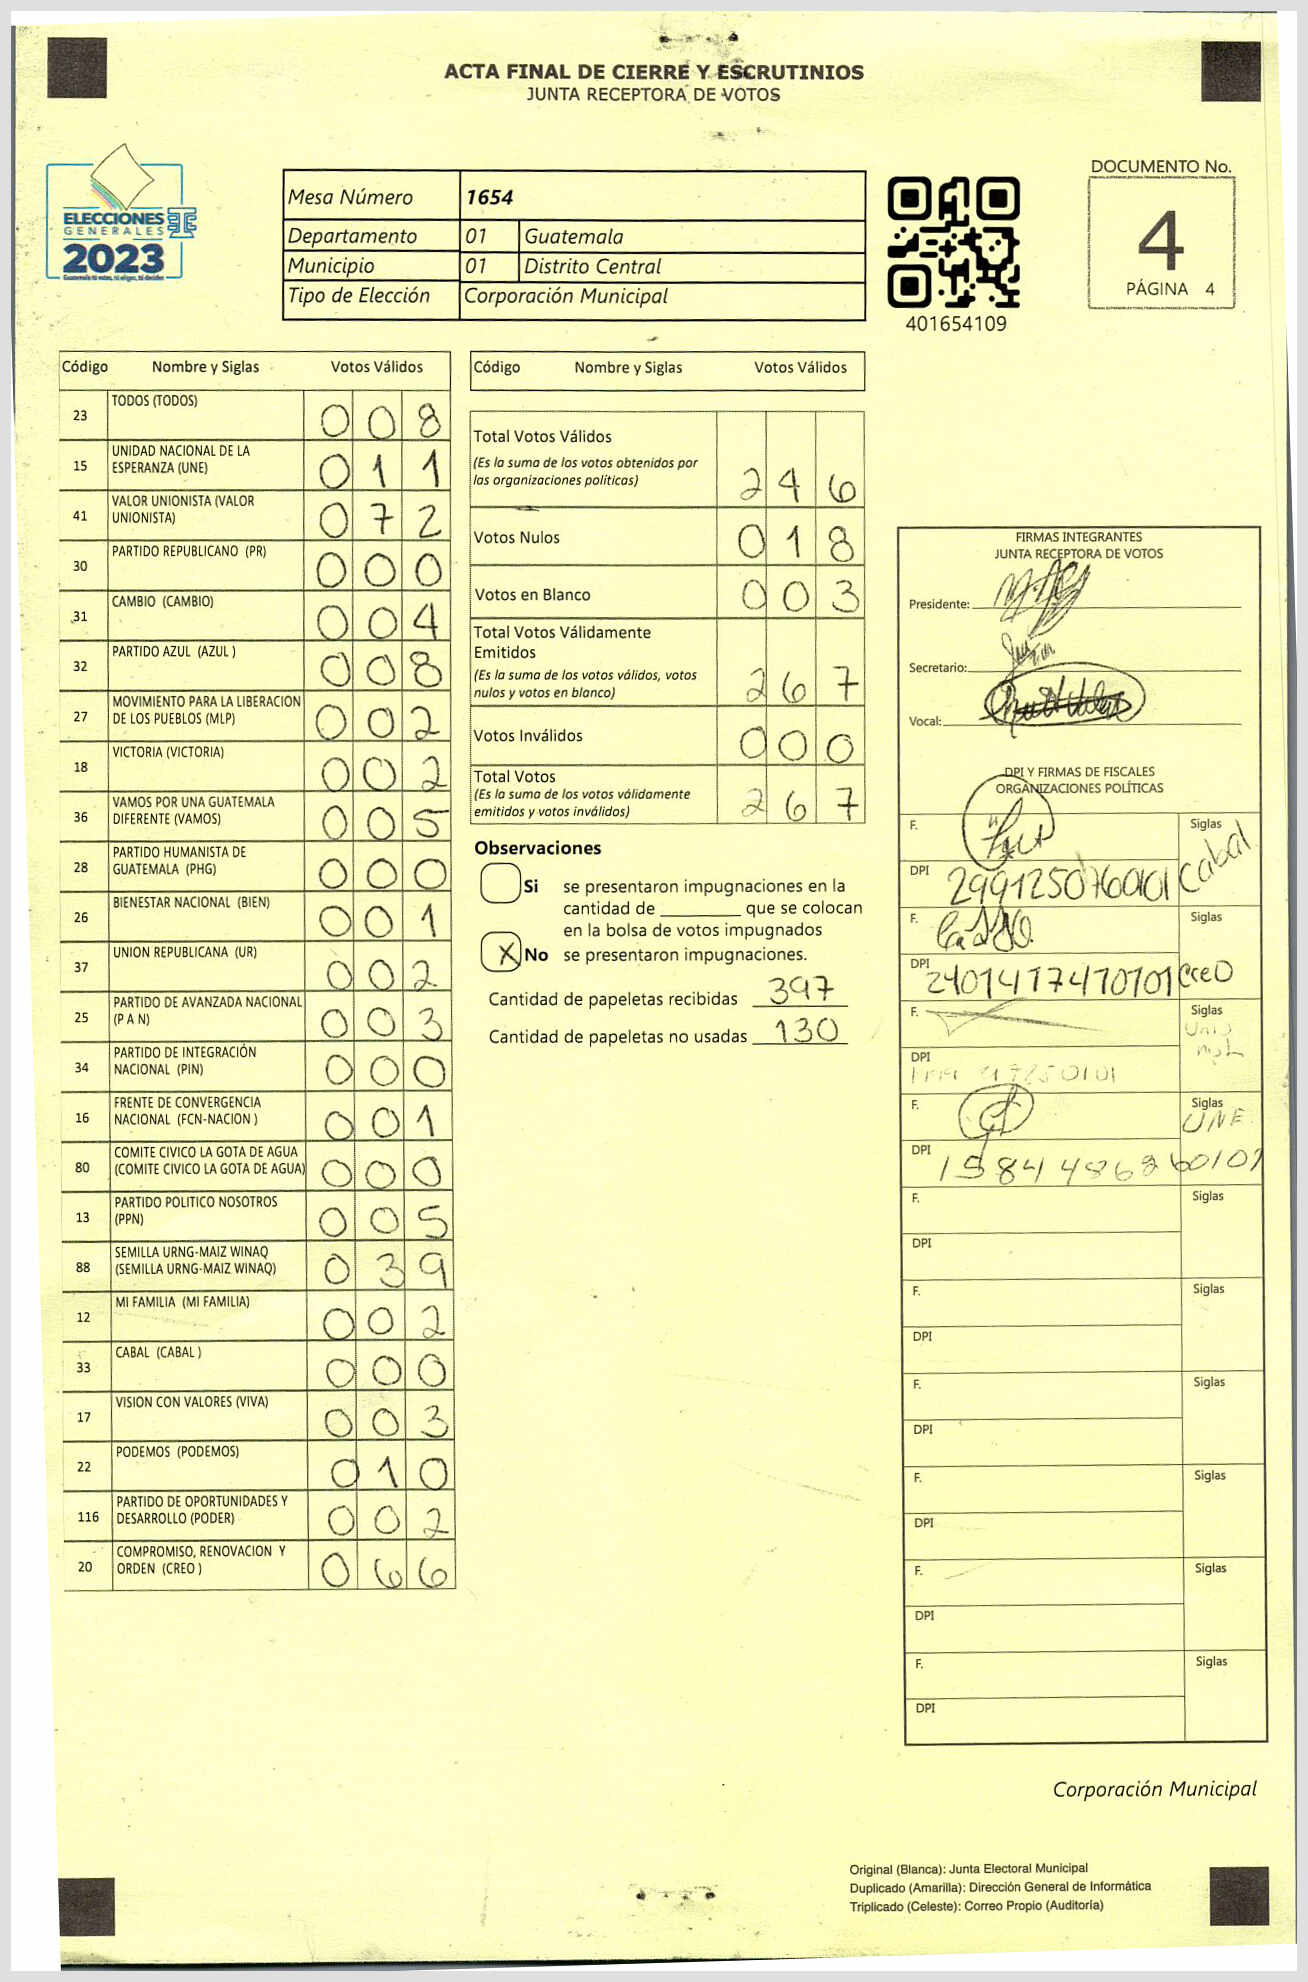 ACTA FINAL DE CIERRE Y ESCRUTINIOS
JUNTA RECEPTORA DE VOTOS
ELECCIONES
GENERALES
2023
Guatemala tú votas, tú eliges, tú decides
Mesa Número 1654
Departamento 01 Guatemala
Municipio 01 Distrito Central
Tipo de Elección Corporación Municipal
401654109
DOCUMENTO No.
4
PÁGINA 4
Código Nombre y Siglas Votos Válidos
23 TODOS (TODOS) 008
15 UNIDAD NACIONAL DE LA ESPERANZA (UNE) 011
41 VALOR UNIONISTA (VALOR UNIONISTA) 072
30 PARTIDO REPUBLICANO (PR) 000
31 CAMBIO (CAMBIO) 004
32 PARTIDO AZUL (AZUL ) 008
27 MOVIMIENTO PARA LA LIBERACION DE LOS PUEBLOS (MLP) 002
18 VICTORIA (VICTORIA) 002
36 VAMOS POR UNA GUATEMALA DIFERENTE (VAMOS) 005
28 PARTIDO HUMANISTA DE GUATEMALA (PHG) 000
26 BIENESTAR NACIONAL (BIEN) 001
37 UNION REPUBLICANA (UR) 002
25 PARTIDO DE AVANZADA NACIONAL (P A N) 003
34 PARTIDO DE INTEGRACIÓN NACIONAL (PIN) 000
16 FRENTE DE CONVERGENCIA NACIONAL (FCN-NACION ) 001
80 COMITE CIVICO LA GOTA DE AGUA (COMITE CIVICO LA GOTA DE AGUA) 000
13 PARTIDO POLITICO NOSOTROS (PPN) 005
88 SEMILLA URNG-MAIZ WINAQ (SEMILLA URNG-MAIZ WINAQ) 039
12 MI FAMILIA (MI FAMILIA) 002
33 CABAL (CABAL ) 000
17 VISION CON VALORES (VIVA) 003
22 PODEMOS (PODEMOS) 010
116 PARTIDO DE OPORTUNIDADES Y DESARROLLO (PODER) 002
20 COMPROMISO, RENOVACION Y ORDEN (CREO ) 066
Código Nombre y Siglas Votos Válidos
Total Votos Válidos
(Es la suma de los votos obtenidos por
las organizaciones políticas) 246
Votos Nulos 018
Votos en Blanco 003
Total Votos Válidamente
Emitidos
(Es la suma de los votos válidos, votos
nulos y votos en blanco) 267
Votos Inválidos 000
Total Votos
(Es la suma de los votos válidamente
emitidos y votos inválidos) 267
Observaciones
Si se presentaron impugnaciones en la
cantidad de ________ que se colocan
en la bolsa de votos impugnados
X No se presentaron impugnaciones.
Cantidad de papeletas recibidas 397
Cantidad de papeletas no usadas 130
FIRMAS INTEGRANTES
JUNTA RECEPTORA DE VOTOS
Presidente:
Secretario:
Vocal:
DPI Y FIRMAS DE FISCALES
ORGANIZACIONES POLÍTICAS
F. Siglas Cabal
DPI 2991250760101
F. Siglas CreO
DPI 2401417470101
F. Siglas
DPI
F. Siglas UNE
DPI 15844486260101
F. Siglas
DPI
F. Siglas
DPI
F. Siglas
DPI
F. Siglas
DPI
F. Siglas
DPI
F. Siglas
DPI
Corporación Municipal
Original (Blanca): Junta Electoral Municipal
Duplicado (Amarilla): Dirección General de Informática
Triplicado (Celeste): Correo Propio (Auditoría)